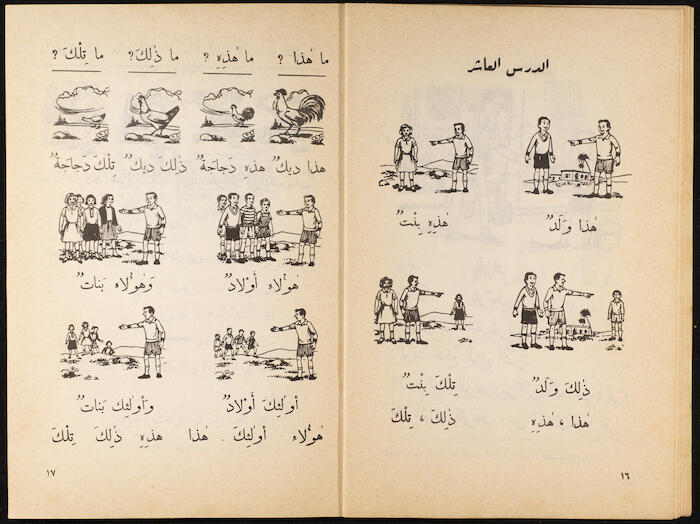 الدرس العاشر
هٰذا وَلَدٌ هٰذِهِ بِنْتٌ
ذٰلِكَ وَلَدٌ تِلْكَ بِنْتٌ
هٰذا ، هٰذِهِ ذٰلِكَ ، تِلْكَ
١٦
ما هٰذا ؟ ما هٰذِهِ ؟ ما ذٰلِكَ ؟ ما تِلْكَ ؟
هذا ديكٌ هذهِ دَجاجَةٌ ذلكَ ديكٌ تِلكَ دَجاجَةٌ
هٰؤُلاءِ أَوْلادٌ وَهٰؤُلاءِ بَناتٌ
أولٰئِكَ أَوْلادٌ وَأولٰئِكَ بَناتٌ
هٰؤُلاءِ أولٰئِكَ . هٰذا هٰذِهِ ذٰلِكَ تِلْكَ
١٧